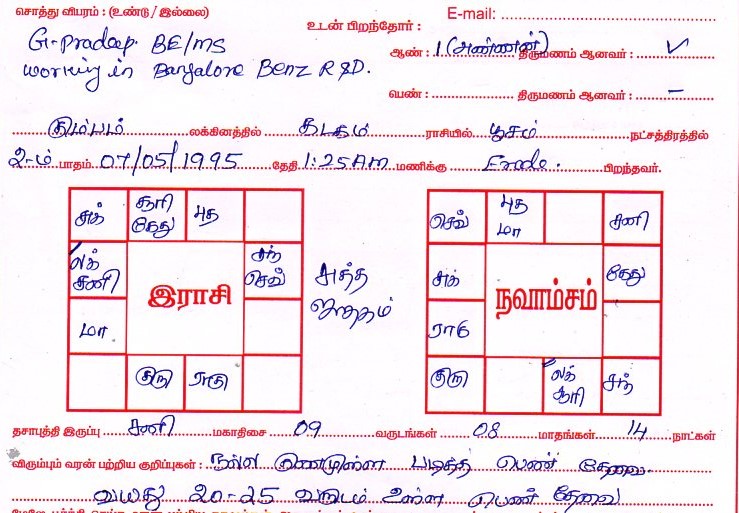 சொத்து விபரம் : (உண்டு / இல்லை)
E-mail:
உடன் பிறந்தோர் :
G. Pradeep. BE/MS
ஆண் : 1 (அண்ணன்) திருமணம் ஆனவர் : ✓
working in Bangalore Benz R&D.
பெண் : திருமணம் ஆனவர் : –
கும்பம் லக்கினத்தில் கடகம் ராசியில் பூசம் நட்சத்திரத்தில்
2-ம் பாதம் 07/05/1995 தேதி 1:25 AM மணிக்கு Erode. பிறந்தவர்.
சுக் சூரி கேது புத
லக் சனி சந் செவ்
இராசி
மா
குரு ராகு
சுத்த ஜாதகம்
செவ் புத மா சனி
சுக் கேது
நவாம்சம்
ராகு
குரு லக் சூரி சந்
தசாபுத்தி இருப்பு சனி மகாதிசை 09 வருடங்கள் 08 மாதங்கள் 14 நாட்கள்
விரும்பும் வரன் பற்றிய குறிப்புகள் : நல்ல குணமுள்ள படித்த பெண் தேவை.
வயது 20-25 வருடம் உள்ள பெண் தேவை